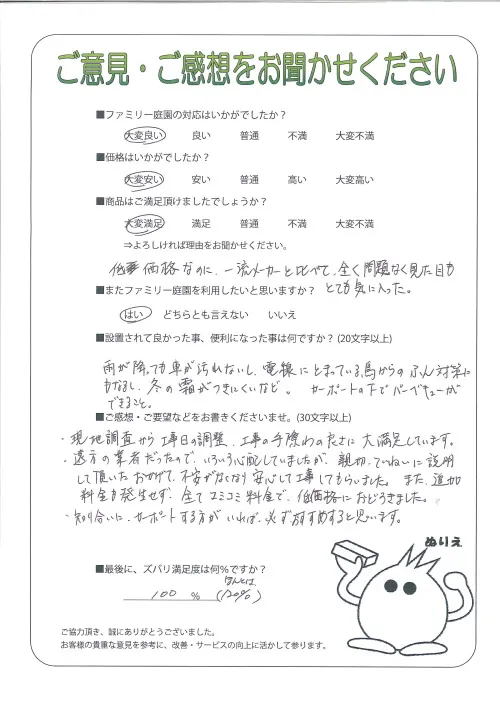 ご意見・ご感想をお聞かせください
■ファミリー庭園の対応はいかがでしたか？
大変良い 良い 普通 不満 大変不満
■価格はいかがでしたか？
大変安い 安い 普通 高い 大変高い
■商品はご満足頂けましたでしょうか？
大変満足 満足 普通 不満 大変不満
⇒よろしければ理由をお聞かせください。
低価格なのに、一流メーカーと比べて、全く問題なく見た目も
とても気に入った。
■またファミリー庭園を利用したいと思いますか？
はい どちらとも言えない いいえ
■設置されて良かった事、便利になった事は何ですか？(20文字以上)
雨が降っても車が汚れないし、電線にとまっている鳥からのふん対策に
もなるし、冬の霜がつきにくいなど。 カーポートの下でバーベキューが
できること。
■ご感想・ご要望などをお書きくださいませ。(30文字以上)
・現地調査から工事日の調整、工事の手際わの良さに大満足しています。
・遠方の業者だったので、いろいろ心配していましたが、親切、ていねいに説明
して頂いたおかげで、不安がなくなり安心して工事してもらいました。また、追加
料金も発生せず、全てコミコミ料金で、低価格におどろきました。
・知り合いに、カーポートする方がいれば、必ずおすすめすると思います。
■最後に、ズバリ満足度は何％ですか？
ほんとは
100 ％ (120%)
ぬりえ
ご協力頂き、誠にありがとうございました。
お客様の貴重な意見を参考に、改善・サービスの向上に活かして参ります。